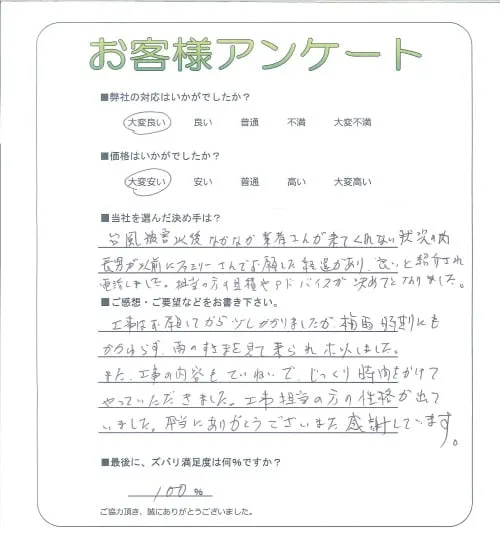 お客様アンケート
■弊社の対応はいかがでしたか？
大変良い 良い 普通 不満 大変不満
■価格はいかがでしたか？
大変安い 安い 普通 高い 大変高い
■当社を選んだ決め手は？
台風被害以後なかなか業者さんが来てくれない状況の内
長男が以前にファミリーさんでお願した経過があり、良いと紹介され
電話しました。担当の方の見積やアドバイスが決めてとなりました。
■ご感想・ご要望などをお書き下さい。
工事はお願してから少しかかりましたが、梅雨時期にも
かかわらず、雨のすきまを見て来られ ホッしました。
また、工事の内容もていねいで、じっくり時間をかけて
やっていただきました。工事担当の方の性格が出て
いました。本当にありがとうございまた 感謝しています。
■最後に、ズバリ満足度は何%ですか？
100 %
ご協力頂き、誠にありがとうございました。